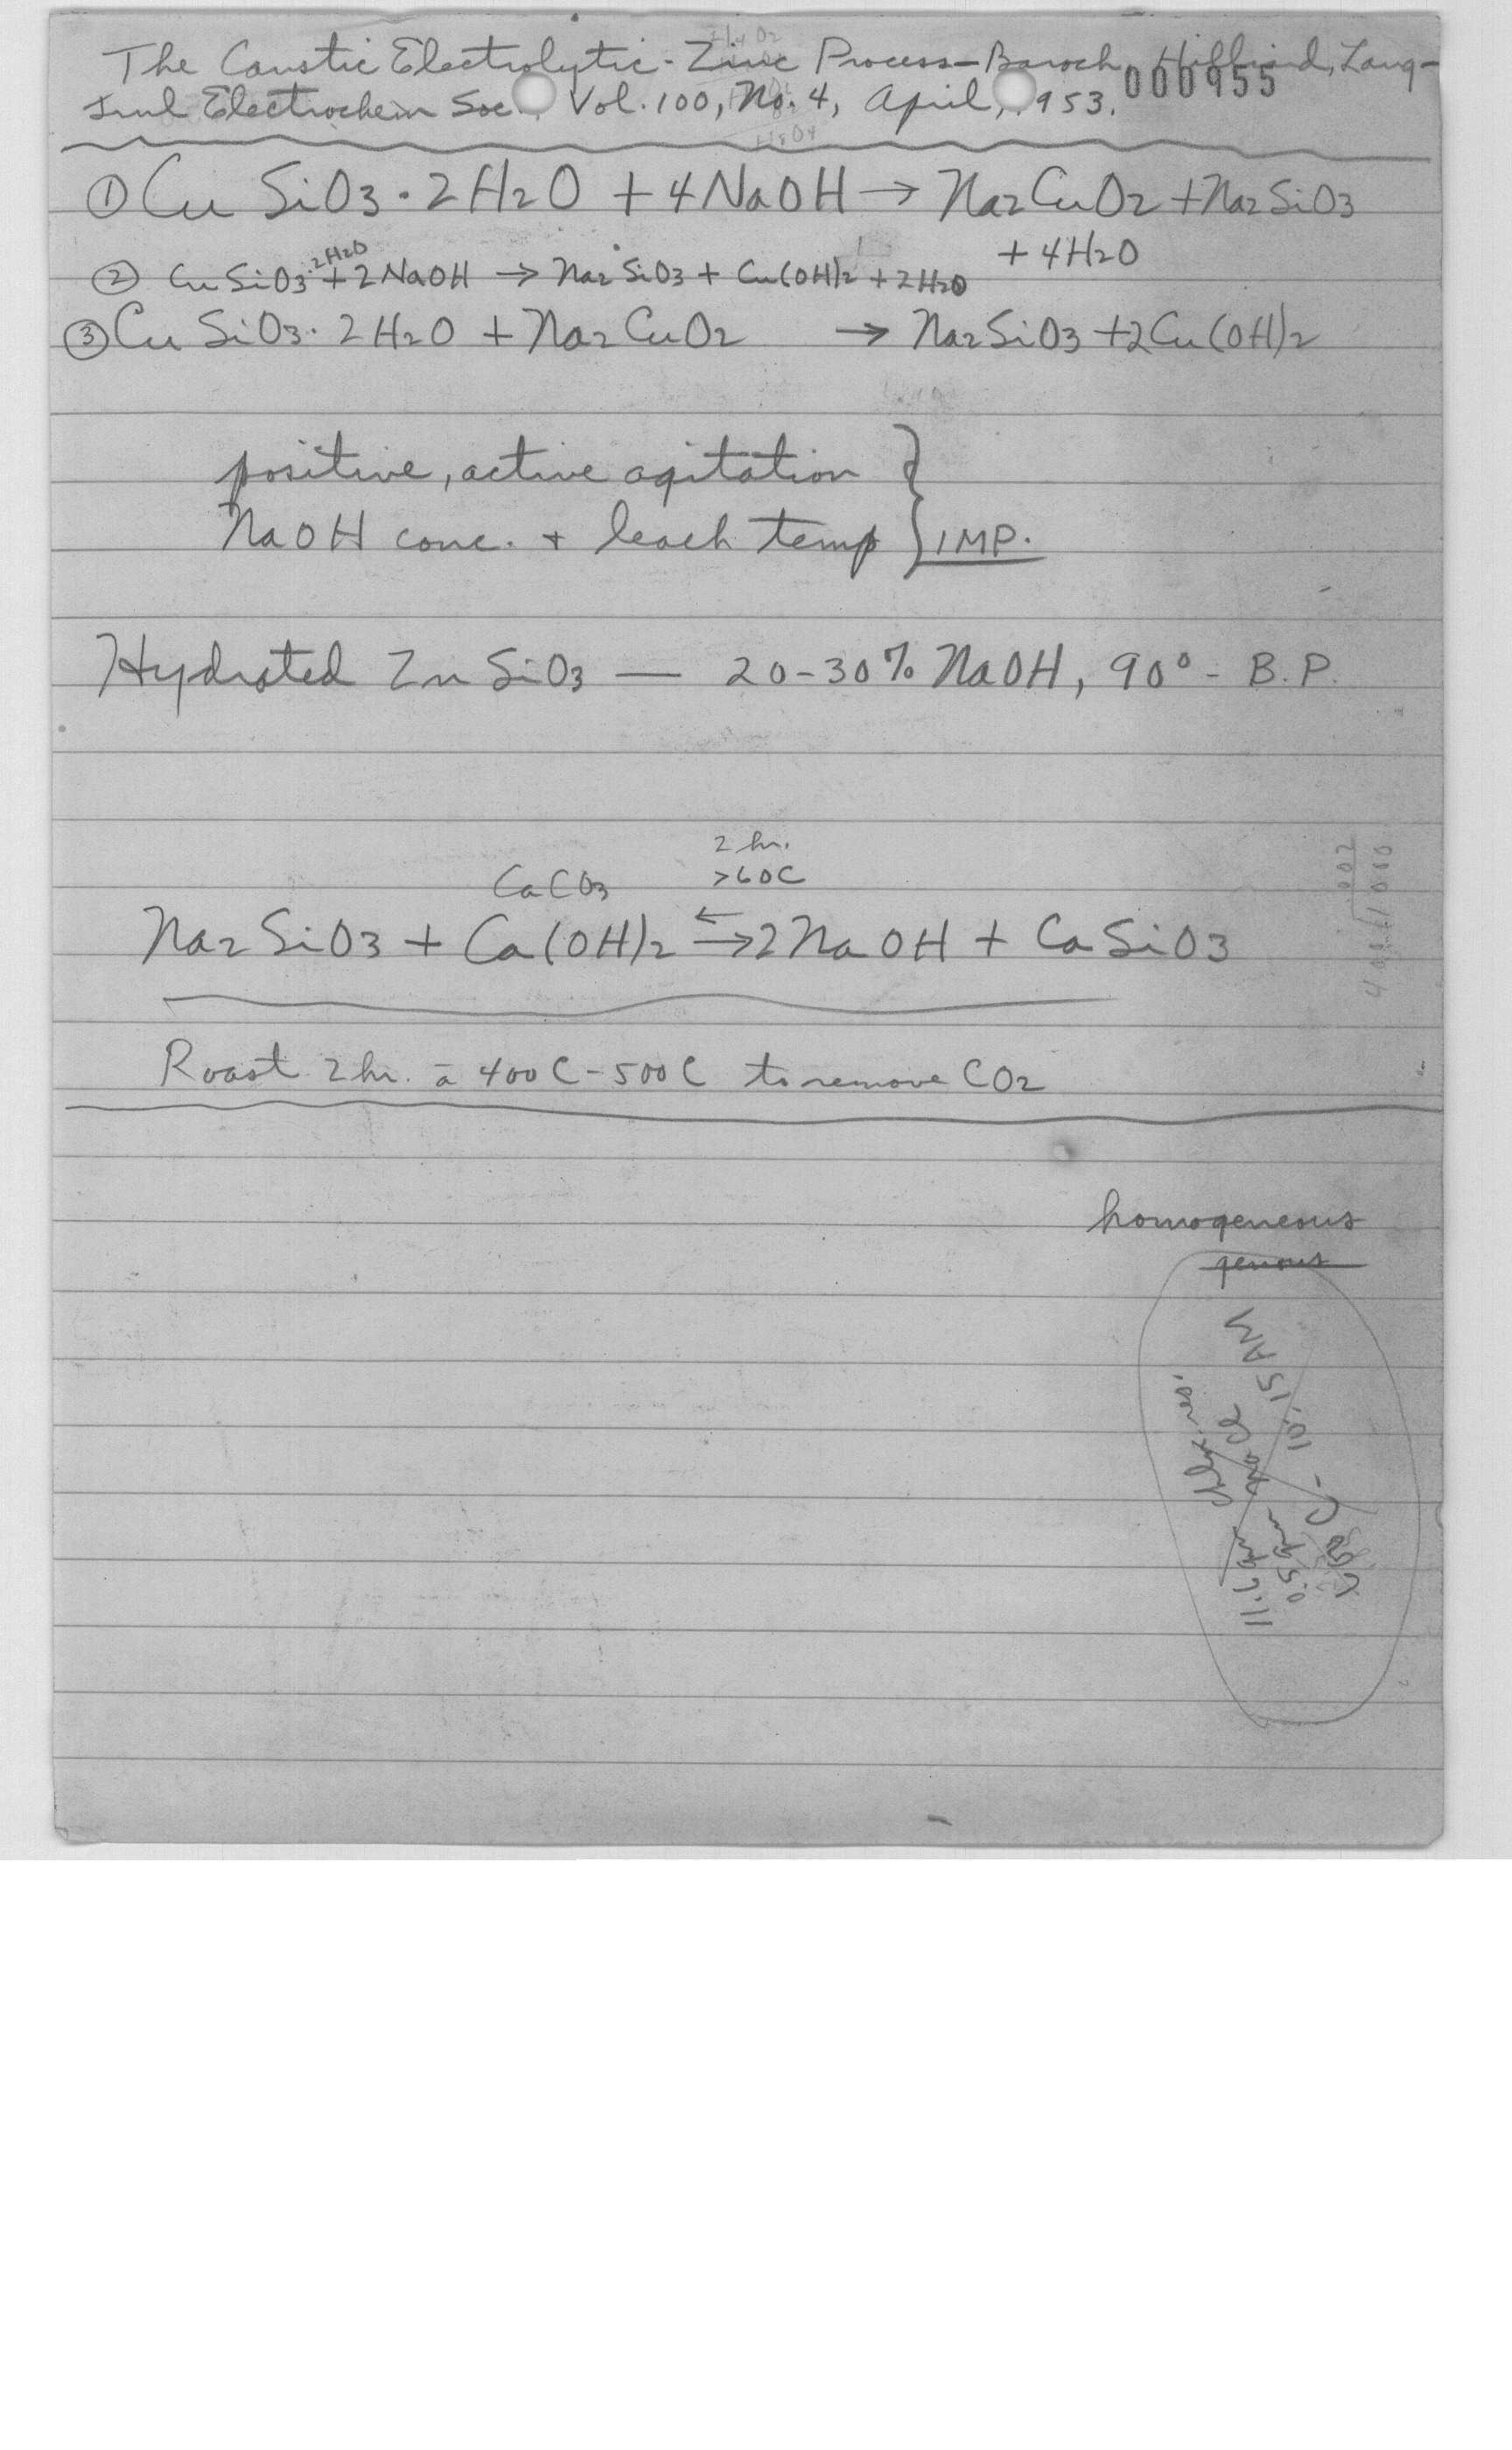 The Caustic Electrolytic-Zinc Process-Baroch, Hilliard, Lang-
Jrnl Electrochem Soc., Vol. 100, No. 4, April, 1953.
000955
① CuSiO3·2H2O + 4NaOH → Na2CuO2 + Na2SiO3
+ 4H2O
② CuSiO3·2H2O + 2NaOH → Na2SiO3 + Cu(OH)2 + 2H2O
③ CuSiO3·2H2O + Na2CuO2 → Na2SiO3 + 2Cu(OH)2
positive, active agitation
NaOH conc. + leach temp } IMP.
Hydrated ZnSiO3 — 20-30% NaOH, 90° - B.P.
2 hr.
CaCO3 >60C
Na2SiO3 + Ca(OH)2 ⇄ 2NaOH + CaSiO3
Roast 2 hr. a 400C-500C to remove CO2
homogeneous
genous
10:15 AM
res.
NaCl
11.6 gm
0.5 gm